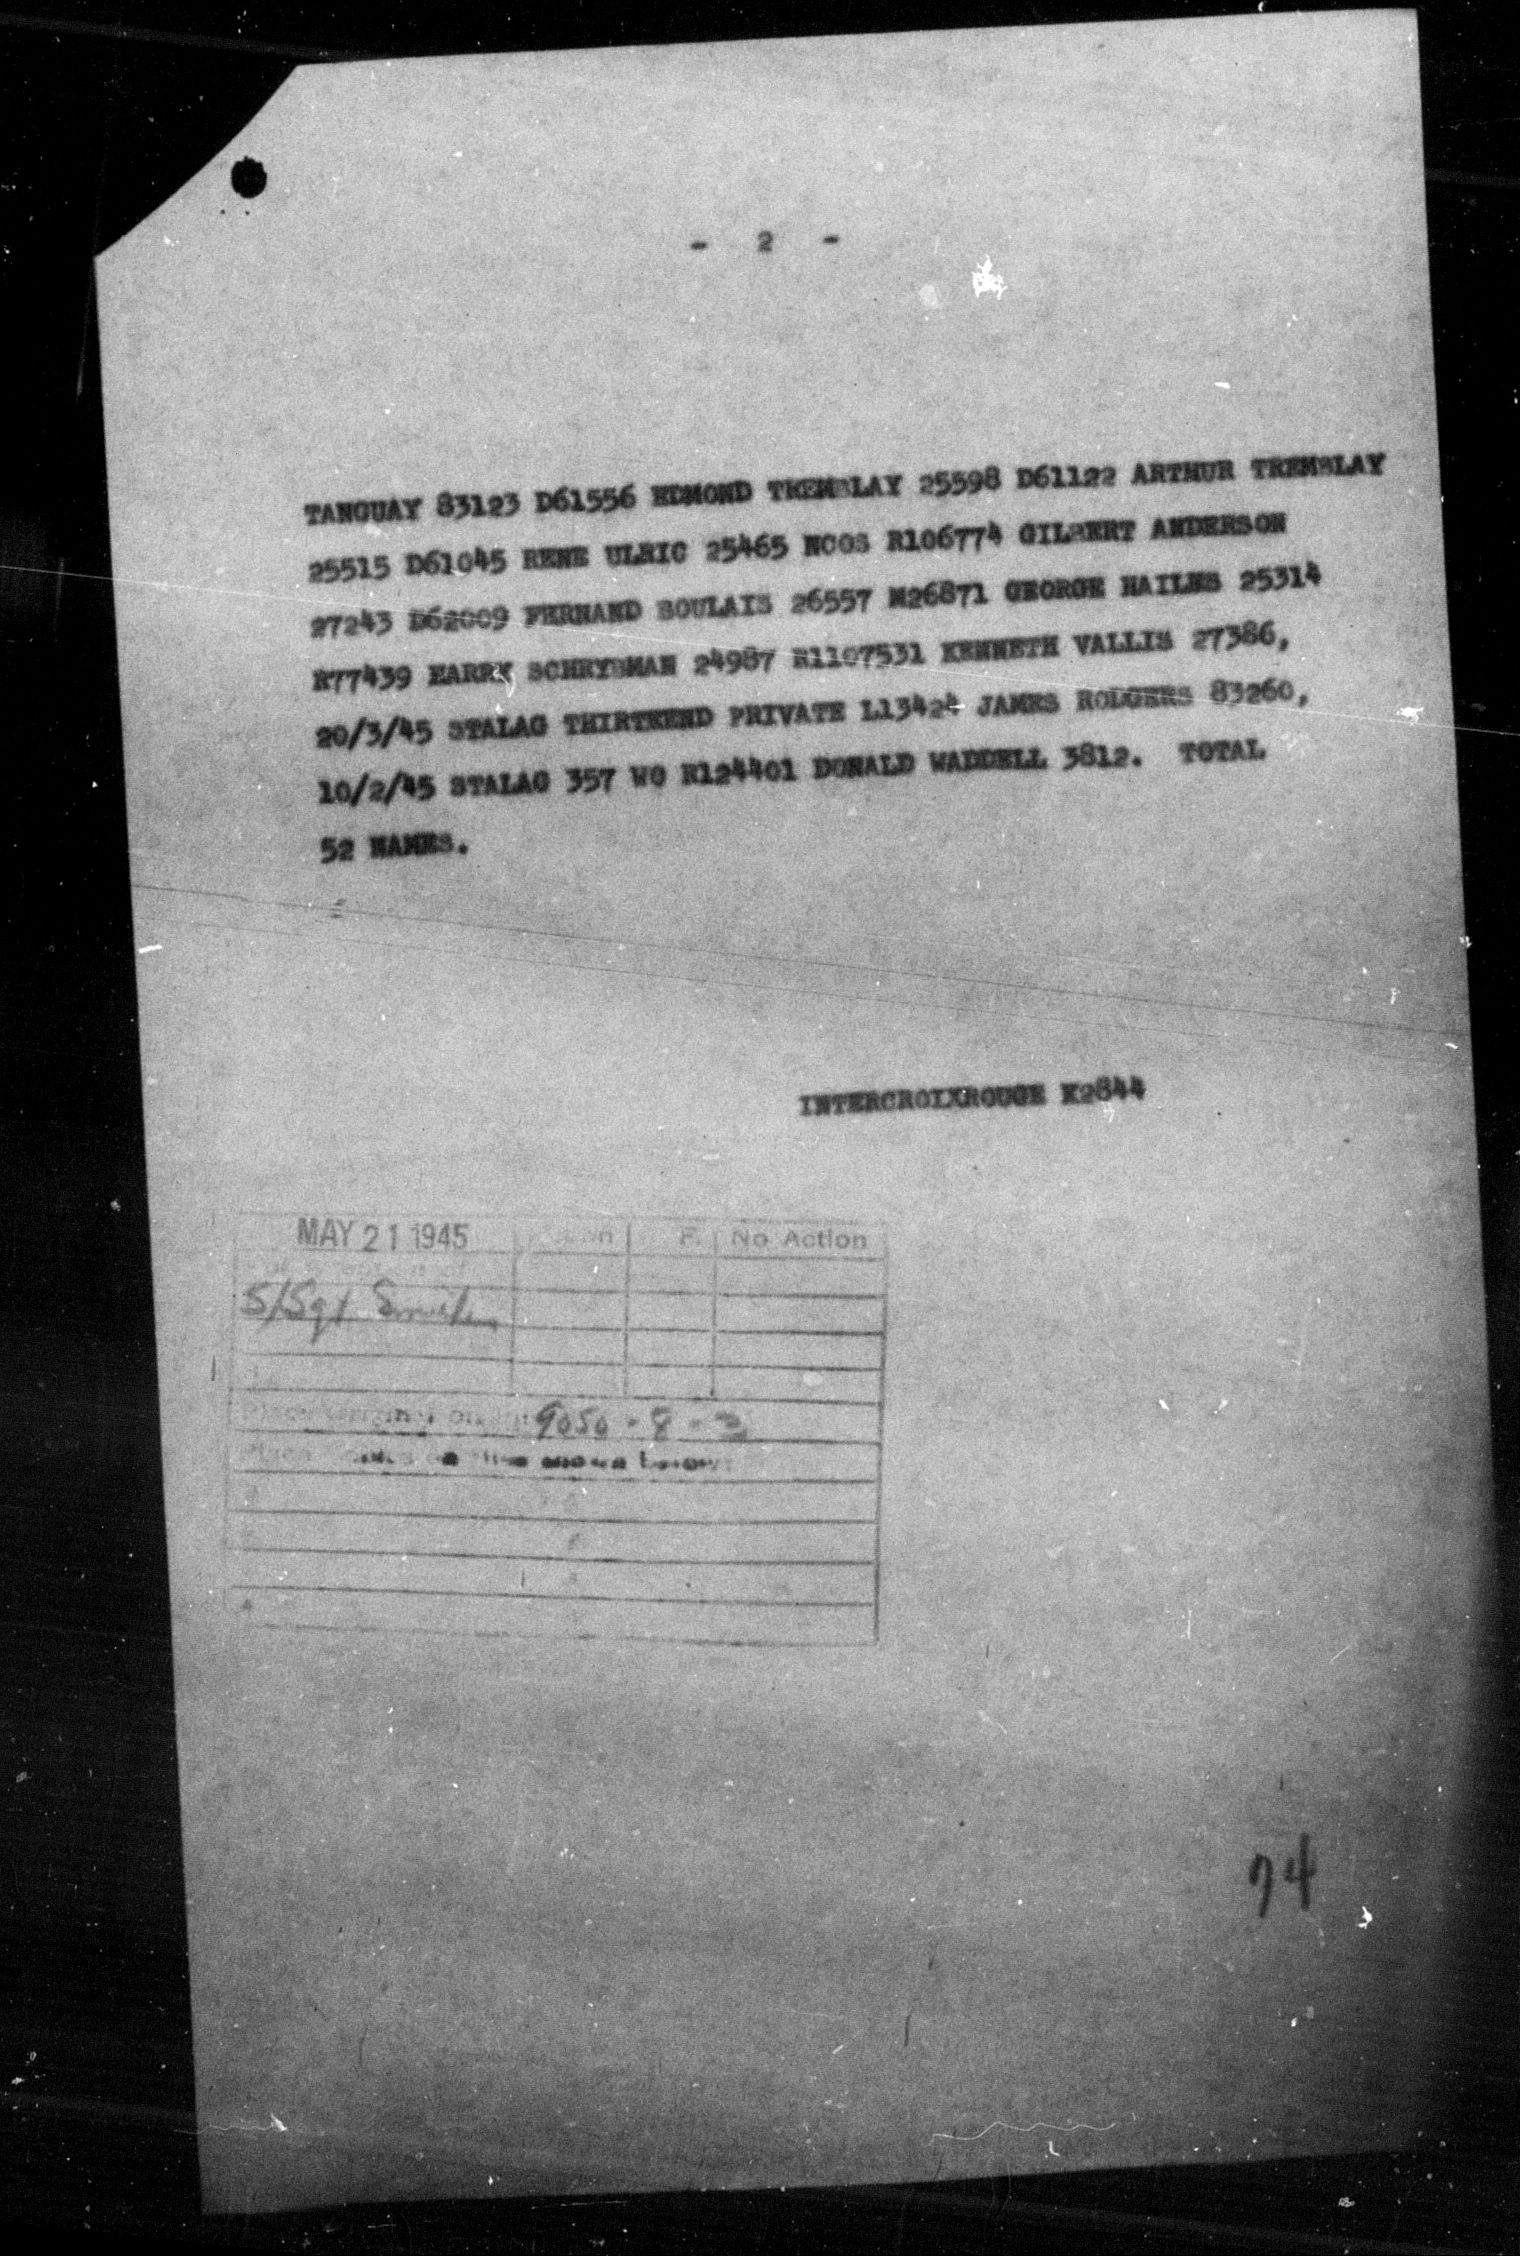 - 2 -
TANGUAY 83123 D61556 EDMOND TREMBLAY 25598 D61122 ARTHUR TREMBLAY
25515 D61045 RENE ULRIC 25465 NCOS R106774 GILBERT ANDERSON
27243 D62009 FERNAND BOULAIS 26557 M26871 GEORGE HAILES 25314
R77439 HARRY SCHRYBMAN 24987 R1107531 KENNETH VALLIS 27386,
20/3/45 STALAG THIRTEEND PRIVATE L13424 JAMES RODGERS 83260,
10/2/45 STALAG 357 WO R124401 DONALD WADDELL 3812. TOTAL
52 NAMES.
INTERCROIXROUGE K2844
MAY 21 1945 F. No Action
S/Sgt Smith
Place original on 9050-8-2
Place
74